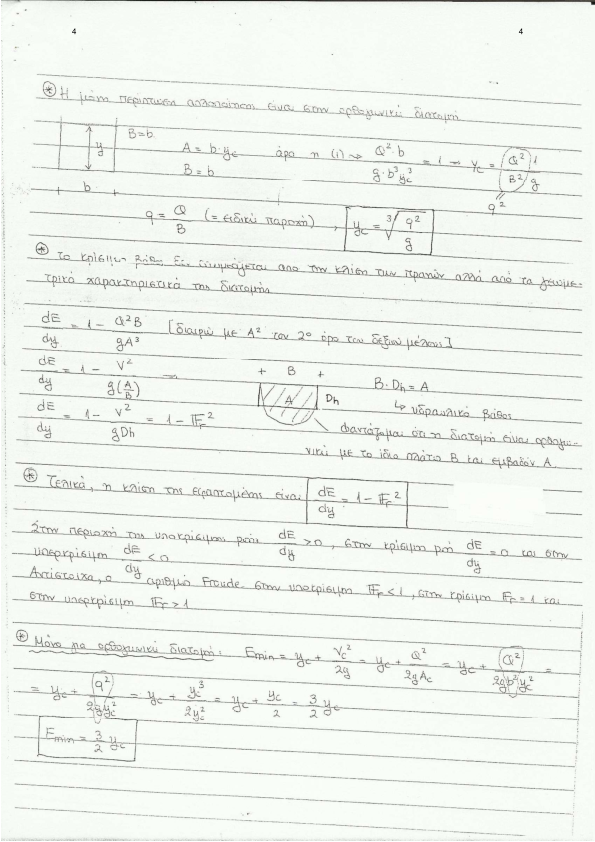 4 4
* Η μόνη περίπτωση απλοποίησης είναι στην ορθογωνική διατομή.
y B=b
A = b·yc άρα η (1) ⇝ Q²·b / g·b³yc³ = 1 ⇝ yc = Q² 1 / B² g
B = b
+ b + q²
q = Q/B (= ειδική παροχή) , yc = ³√(q²/g)
* Το κρίσιμο βάθος δεν από την κλίση των πρανών αλλά από τα γεωμε-
τρικά χαρακτηριστικά της διατομής
dE/dy = 1 - Q²B/gA³ [διαιρώ με A² τον 2º όρο του δεξιού μέλους]
dE/dy = 1 - V²/g(A/B) ⇝ + B + B·Dh = A
A Dh ↳ υδραυλικό βάθος
dE/dy = 1 - V²/gDh = 1 - Fr² φαντάζομαι ότι η διατομή είναι ορθογω-
νική με το ίδιο πλάτος B και εμβαδόν A.
* Τελικά, η κλίση της εφαπτομένης είναι dE/dy = 1 - Fr²
Στην περιοχή της υποκρίσιμης ροής dE/dy > 0 , στην κρίσιμη ροή dE/dy = 0 και στην
υπερκρίσιμη dE/dy < 0
Αντίστοιχα, ο αριθμό Froude στην υποκρίσιμη Fr < 1 , στην κρίσιμη Fr = 1 και
στην υπερκρίσιμη Fr > 1
* Μόνο για ορθογωνική διατομή: Emin = yc + Vc²/2g = yc + Q²/2gAc = yc + Q²/2gb²yc² =
= yc + q²/2gyc² = yc + yc³/2yc² = yc + yc/2 = 3/2 yc
Emin = 3/2 yc